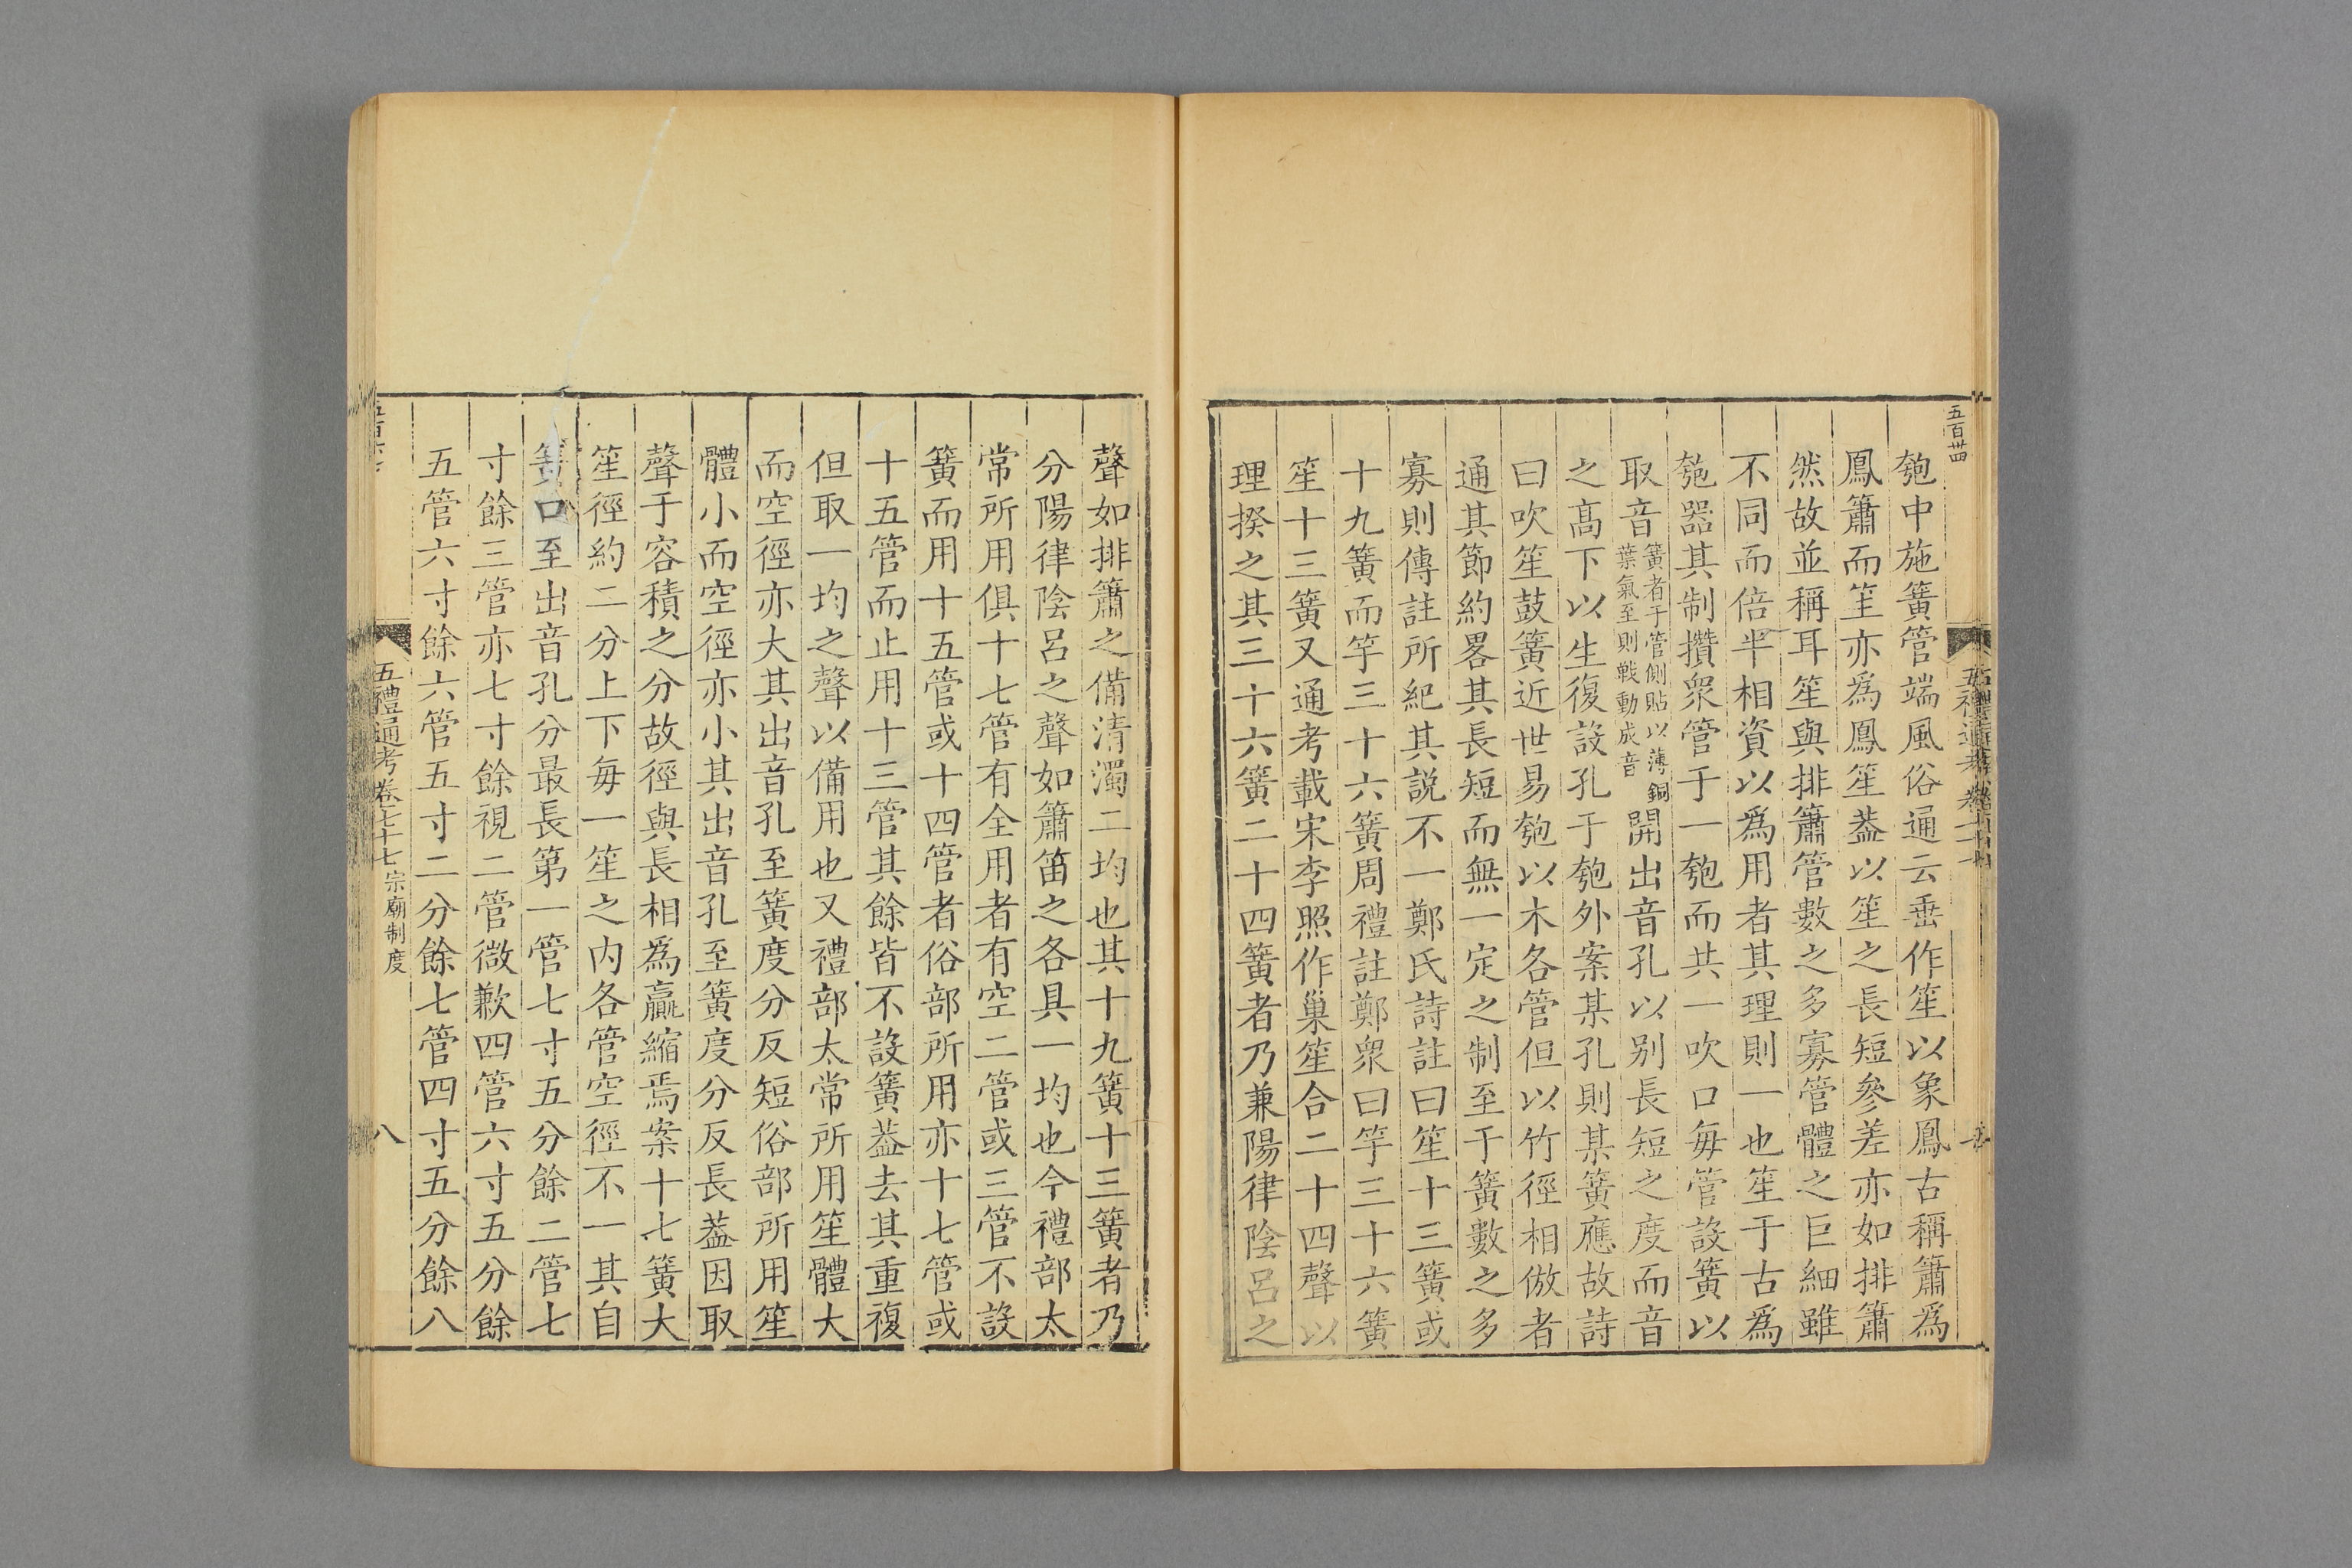 五百卌四
匏中施簧管端風俗通云垂作笙以象鳳古稱簫爲
鳳簫而笙亦爲鳳笙葢以笙之長短參差亦如排簫
然故並稱耳笙與排簫管數之多寡管體之巨細雖
不同而倍半相資以爲用者其理則一也笙于古爲
匏器其制攢衆管于一匏而共一吹口每管設簧以
取音簧者于管側貼以薄銅葉氣至則戰動成音開出音孔以别長短之度而音
之高下以生復設孔于匏外案某孔則某簧應故詩
曰吹笙鼓簧近世易匏以木各管但以竹徑相倣者
通其節約畧其長短而無一定之制至于簧數之多
寡則傳註所紀其說不一鄭氏詩註曰笙十三簧或
十九簧而竽三十六簧周禮註鄭衆曰竽三十六簧
笙十三簧又通考載宋李照作巢笙合二十四聲以
理揆之其三十六簧二十四簧者乃兼陽律陰呂之
聲如排簫之備清濁二均也其十九簧十三簧者乃
分陽律陰呂之聲如簫笛之各具一均也今禮部太
常所用俱十七管有全用者有空二管或三管不設
簧而用十五管或十四管者俗部所用亦十七管或
十五管而止用十三管其餘皆不設簧葢去其重複
但取一均之聲以備用也又禮部太常所用笙體大
而空徑亦大其出音孔至簧度分反短俗部所用笙
體小而空徑亦小其出音孔至簧度分反長葢因取
聲于容積之分故徑與長相爲贏縮焉案十七簧大
笙徑約二分上下每一笙之内各管空徑不一其自
簧口至出音孔分最長第一管七寸五分餘二管七
寸餘三管亦七寸餘視二管微歉四管六寸五分餘
五管六寸餘六管五寸二分餘七管四寸五分餘八
五禮通考卷七十七 宗廟制度
八